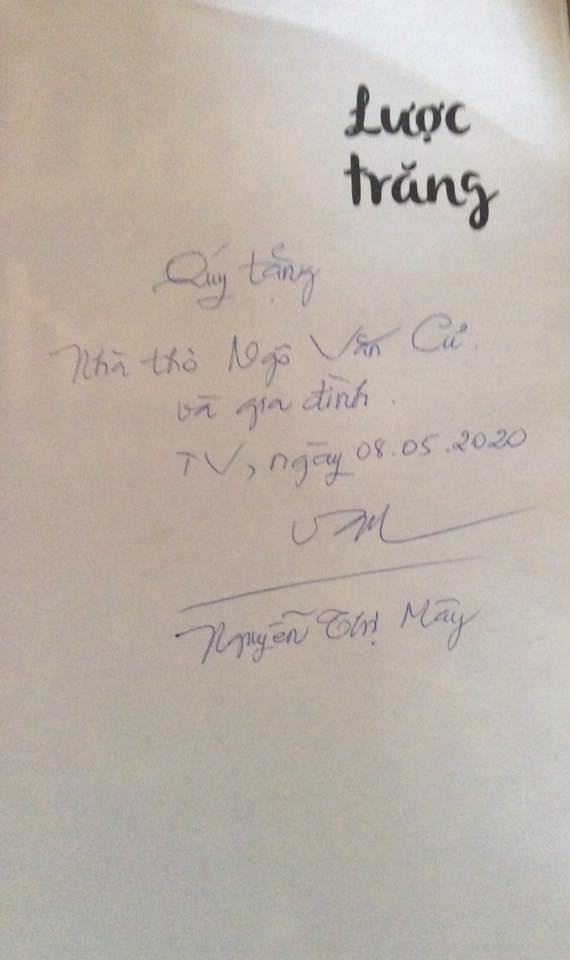 Lược
trăng
Quý tặng
Nhà thơ Ngô Văn Cư.
và gia đình.
TV, ngày 08.05.2020
Nguyễn Thị Mây